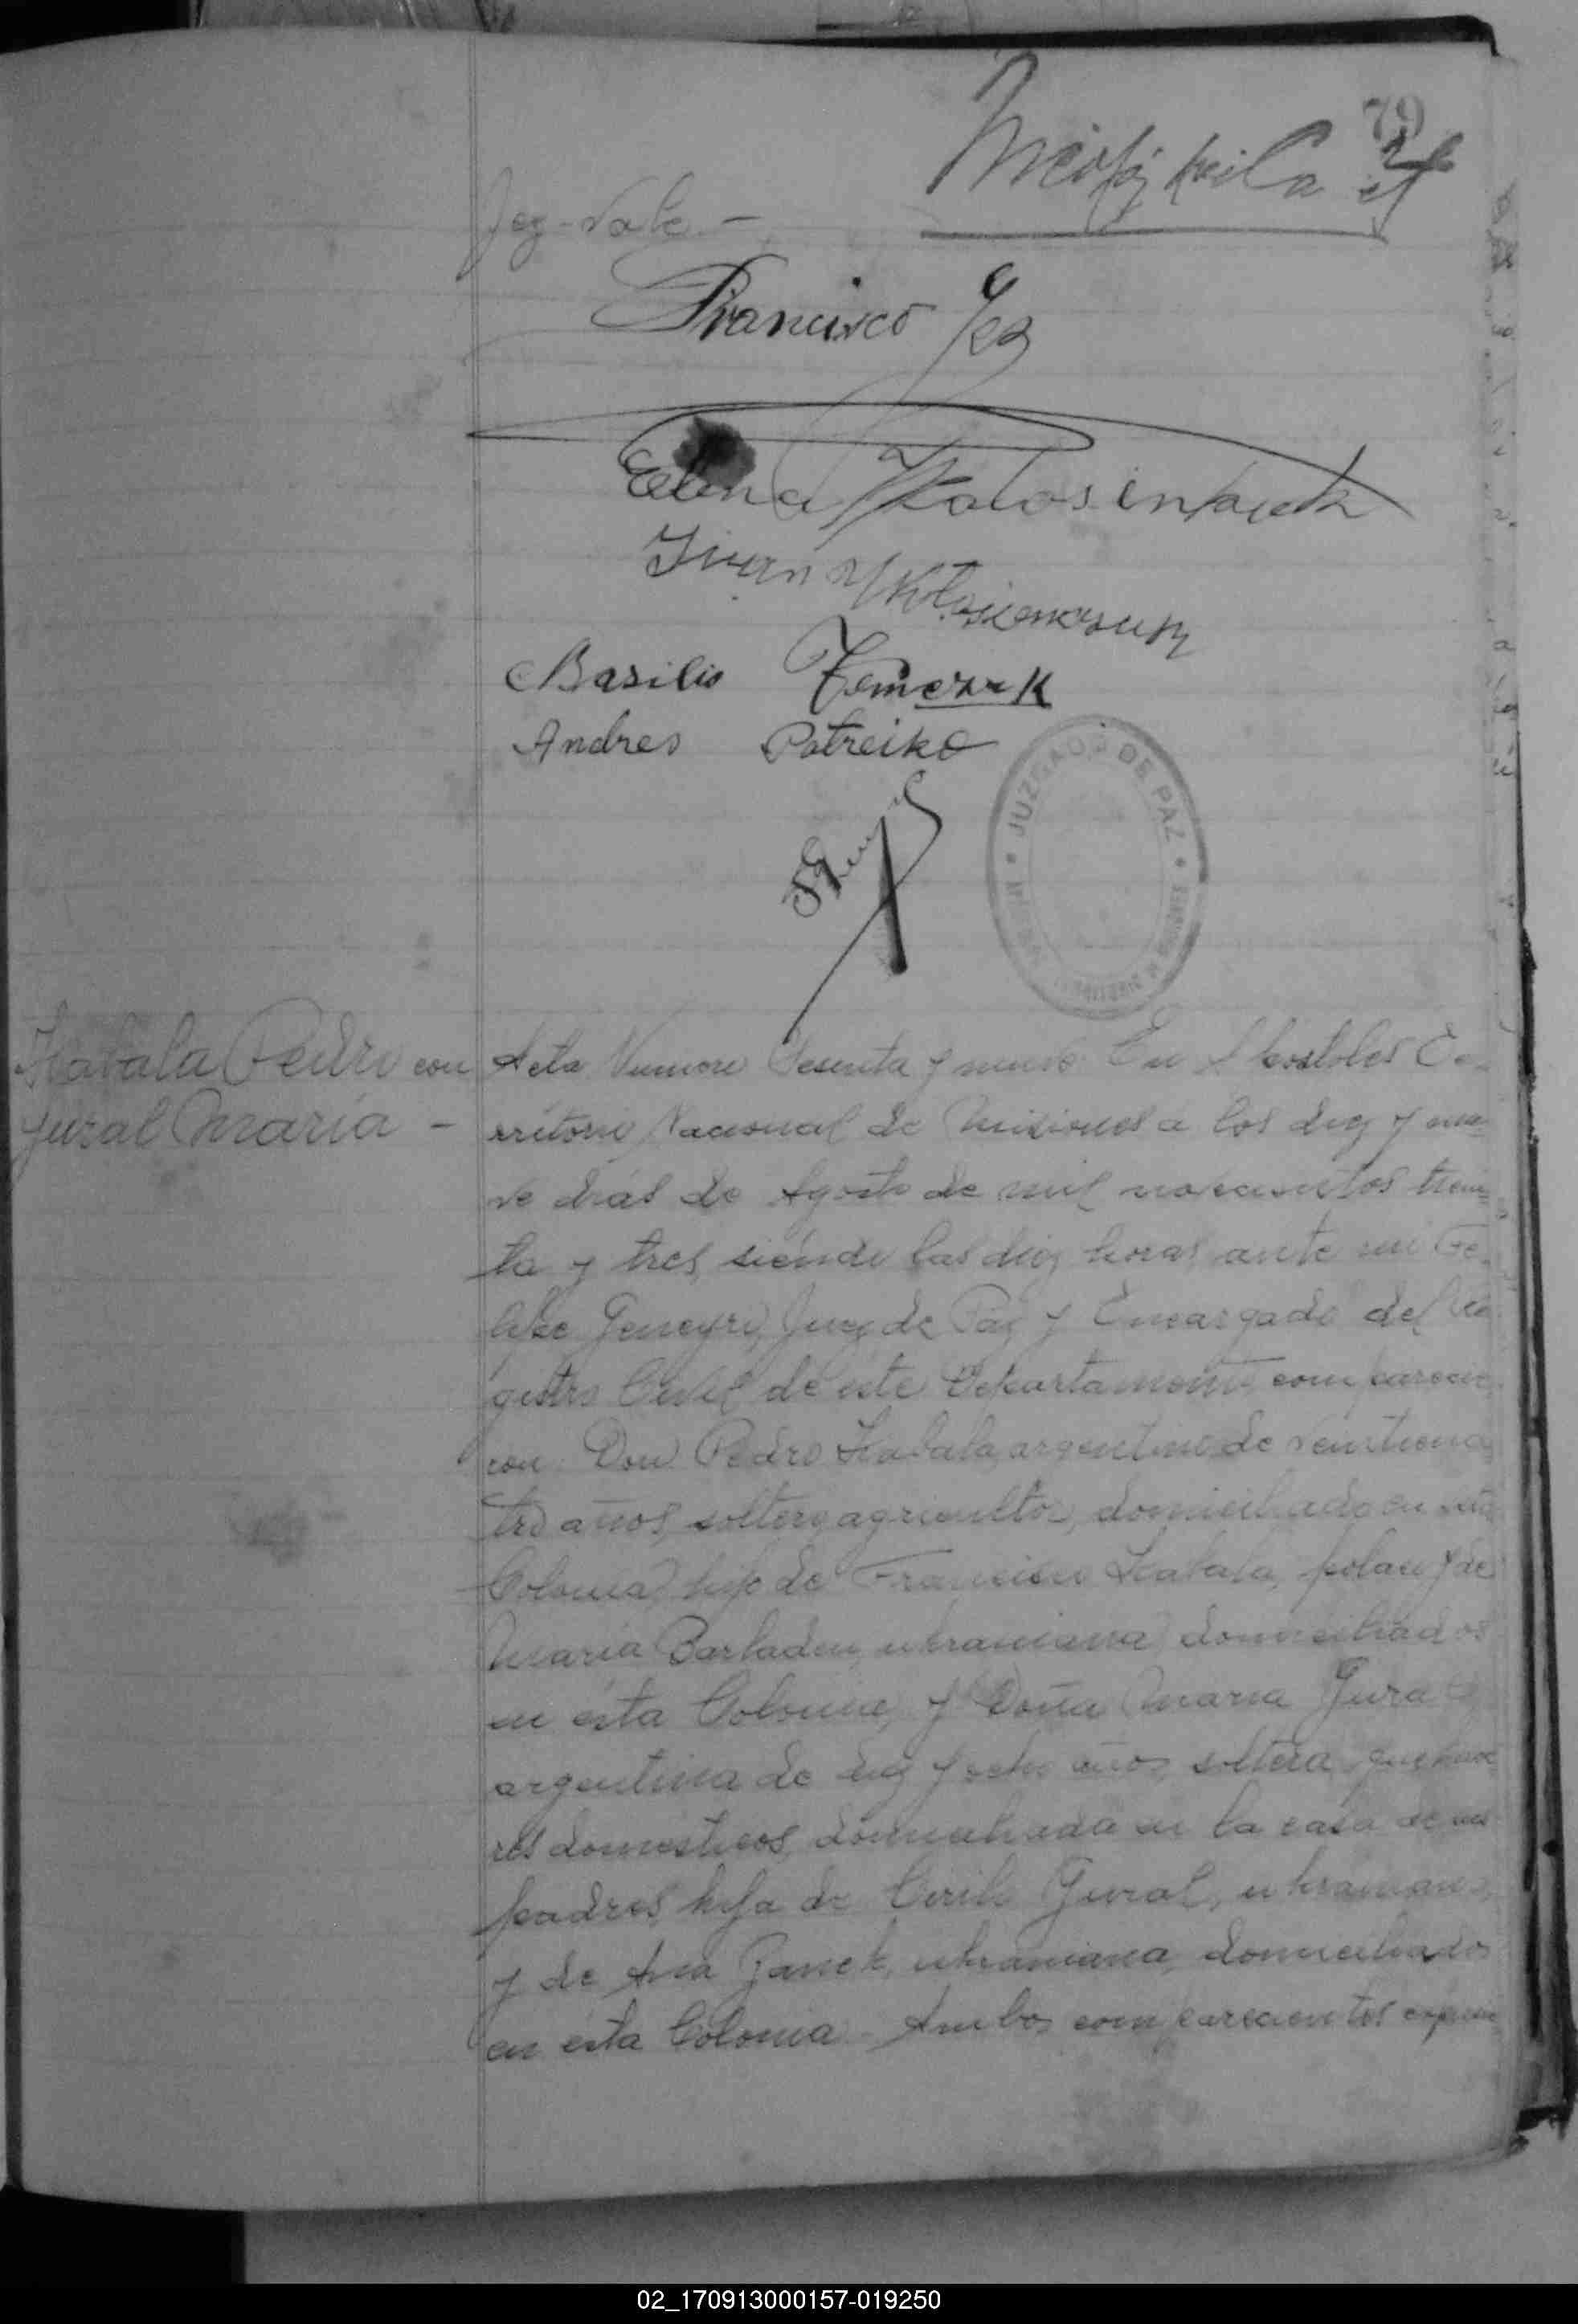 79
Jez - Vale. -
Francisco Jez
Elena
Iwan
Basilio
Andres Patreiko
JUZGADO DE PAZ
Kabala Pedro con
Gural Maria -
Acta Numero Sesenta y nueve. En Apostoles Te-
rritorio Nacional de Misiones a los diez y nue-
ve dias de Agosto de mil novecientos trein-
ta y tres, siendo las diez horas, ante mi Fe-
lipe Geneyro, Juez de Paz y Encargado del Re-
gistro Civil de este Departamento, comparecie-
ron: Don Pedro Kabala, argentino de veinticua-
tro años, soltero, agricultor, domiciliado en esta
Colonia, hijo de Francisco Kabala, polaco y de
Maria ukraniana, domiciliados
en esta Colonia, y Doña Maria Gural
argentina de diez y ocho años, soltera, quehace-
res domesticos, domiciliada en la casa de sus
padres, hija de Cirilo Gural, ukraniano,
y de Ana Zanek, ukraniana, domiciliados
en esta Colonia. - Ambos comparecientes
02_170913000157-019250